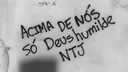 ACIMA DE NÓS
SÓ Deus humilde
NTJ